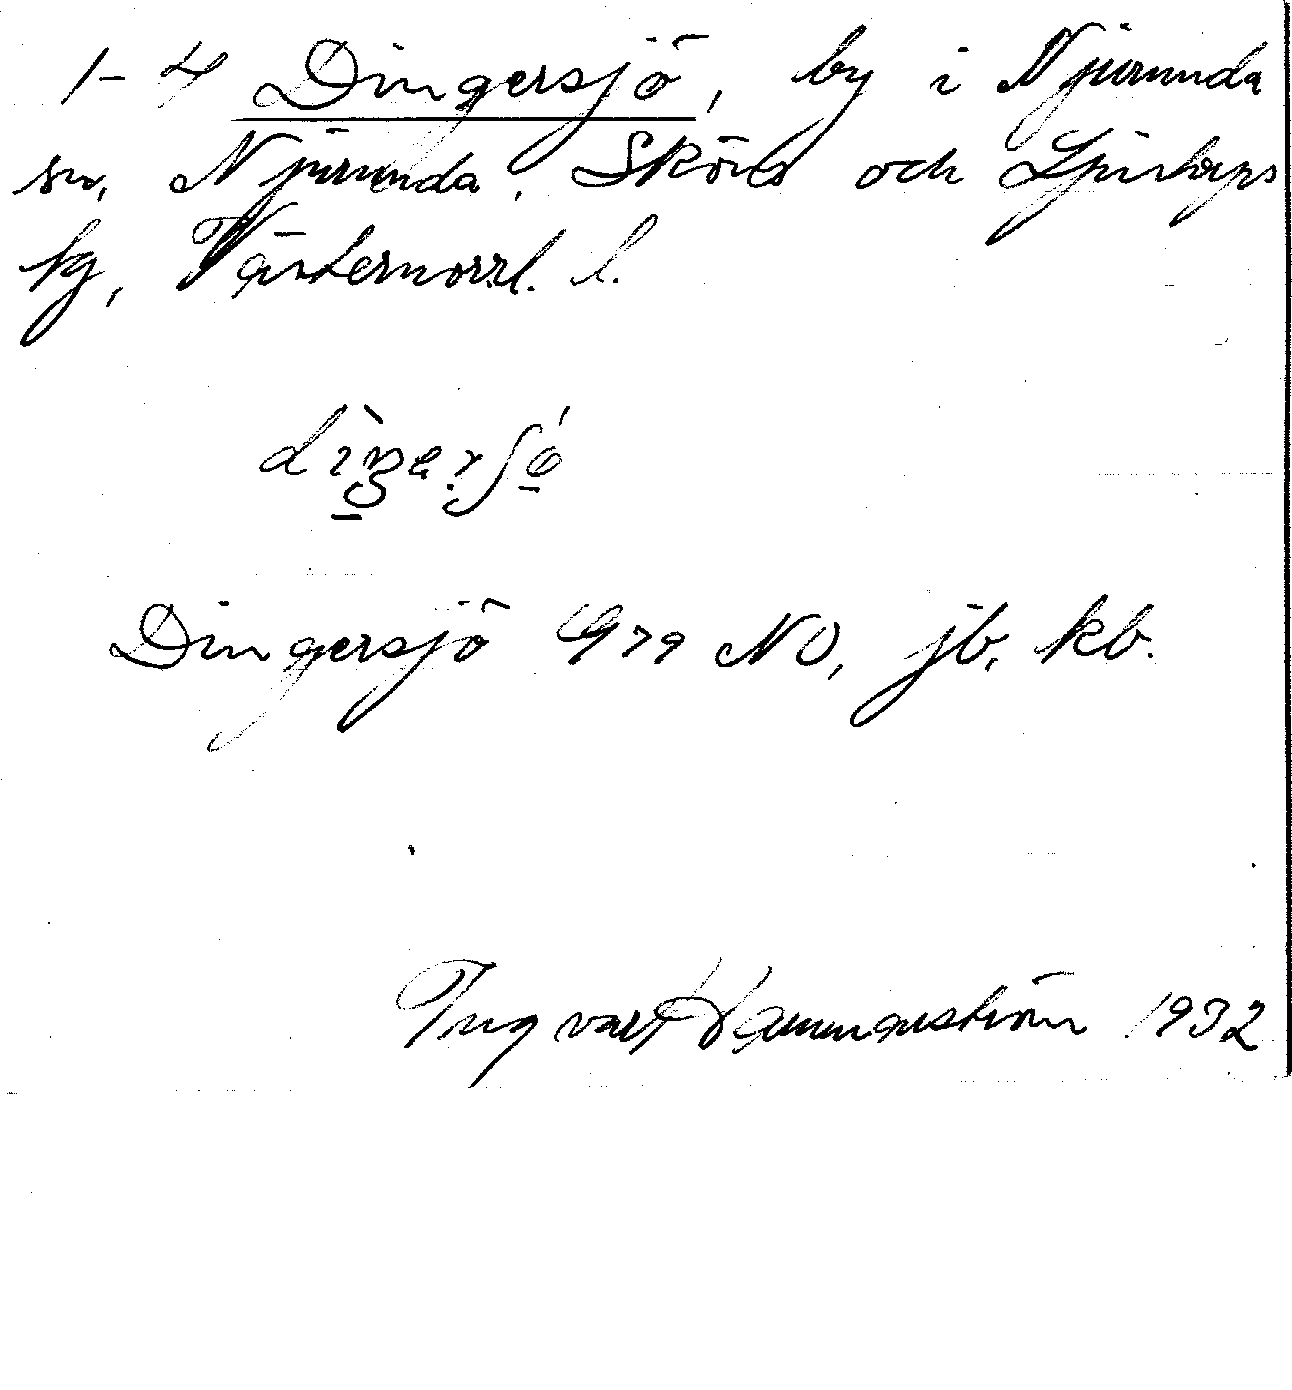 1-4 Dingersjö, by i Njurunda
sn, Njurunda, Sköns och Ljustorps
tg, Västernorrl. l.
Dingersjö G79 NO, jb, kb.
Ingvart Hammarström 1932